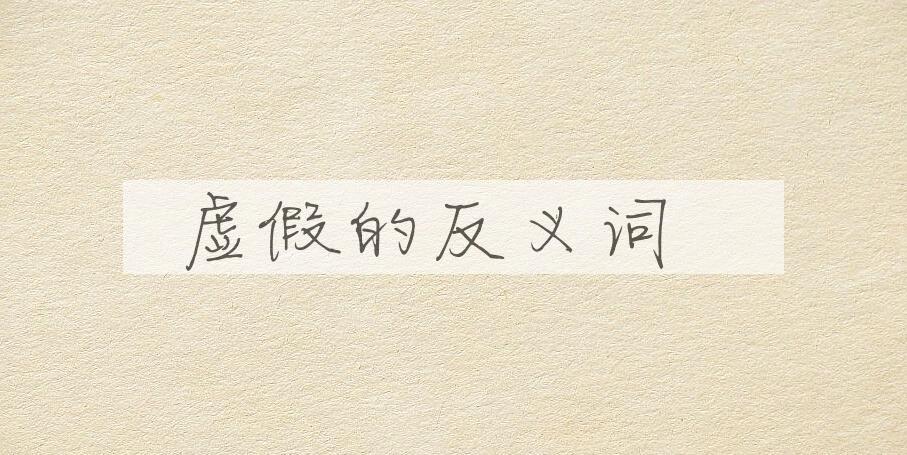 虚假的反义词